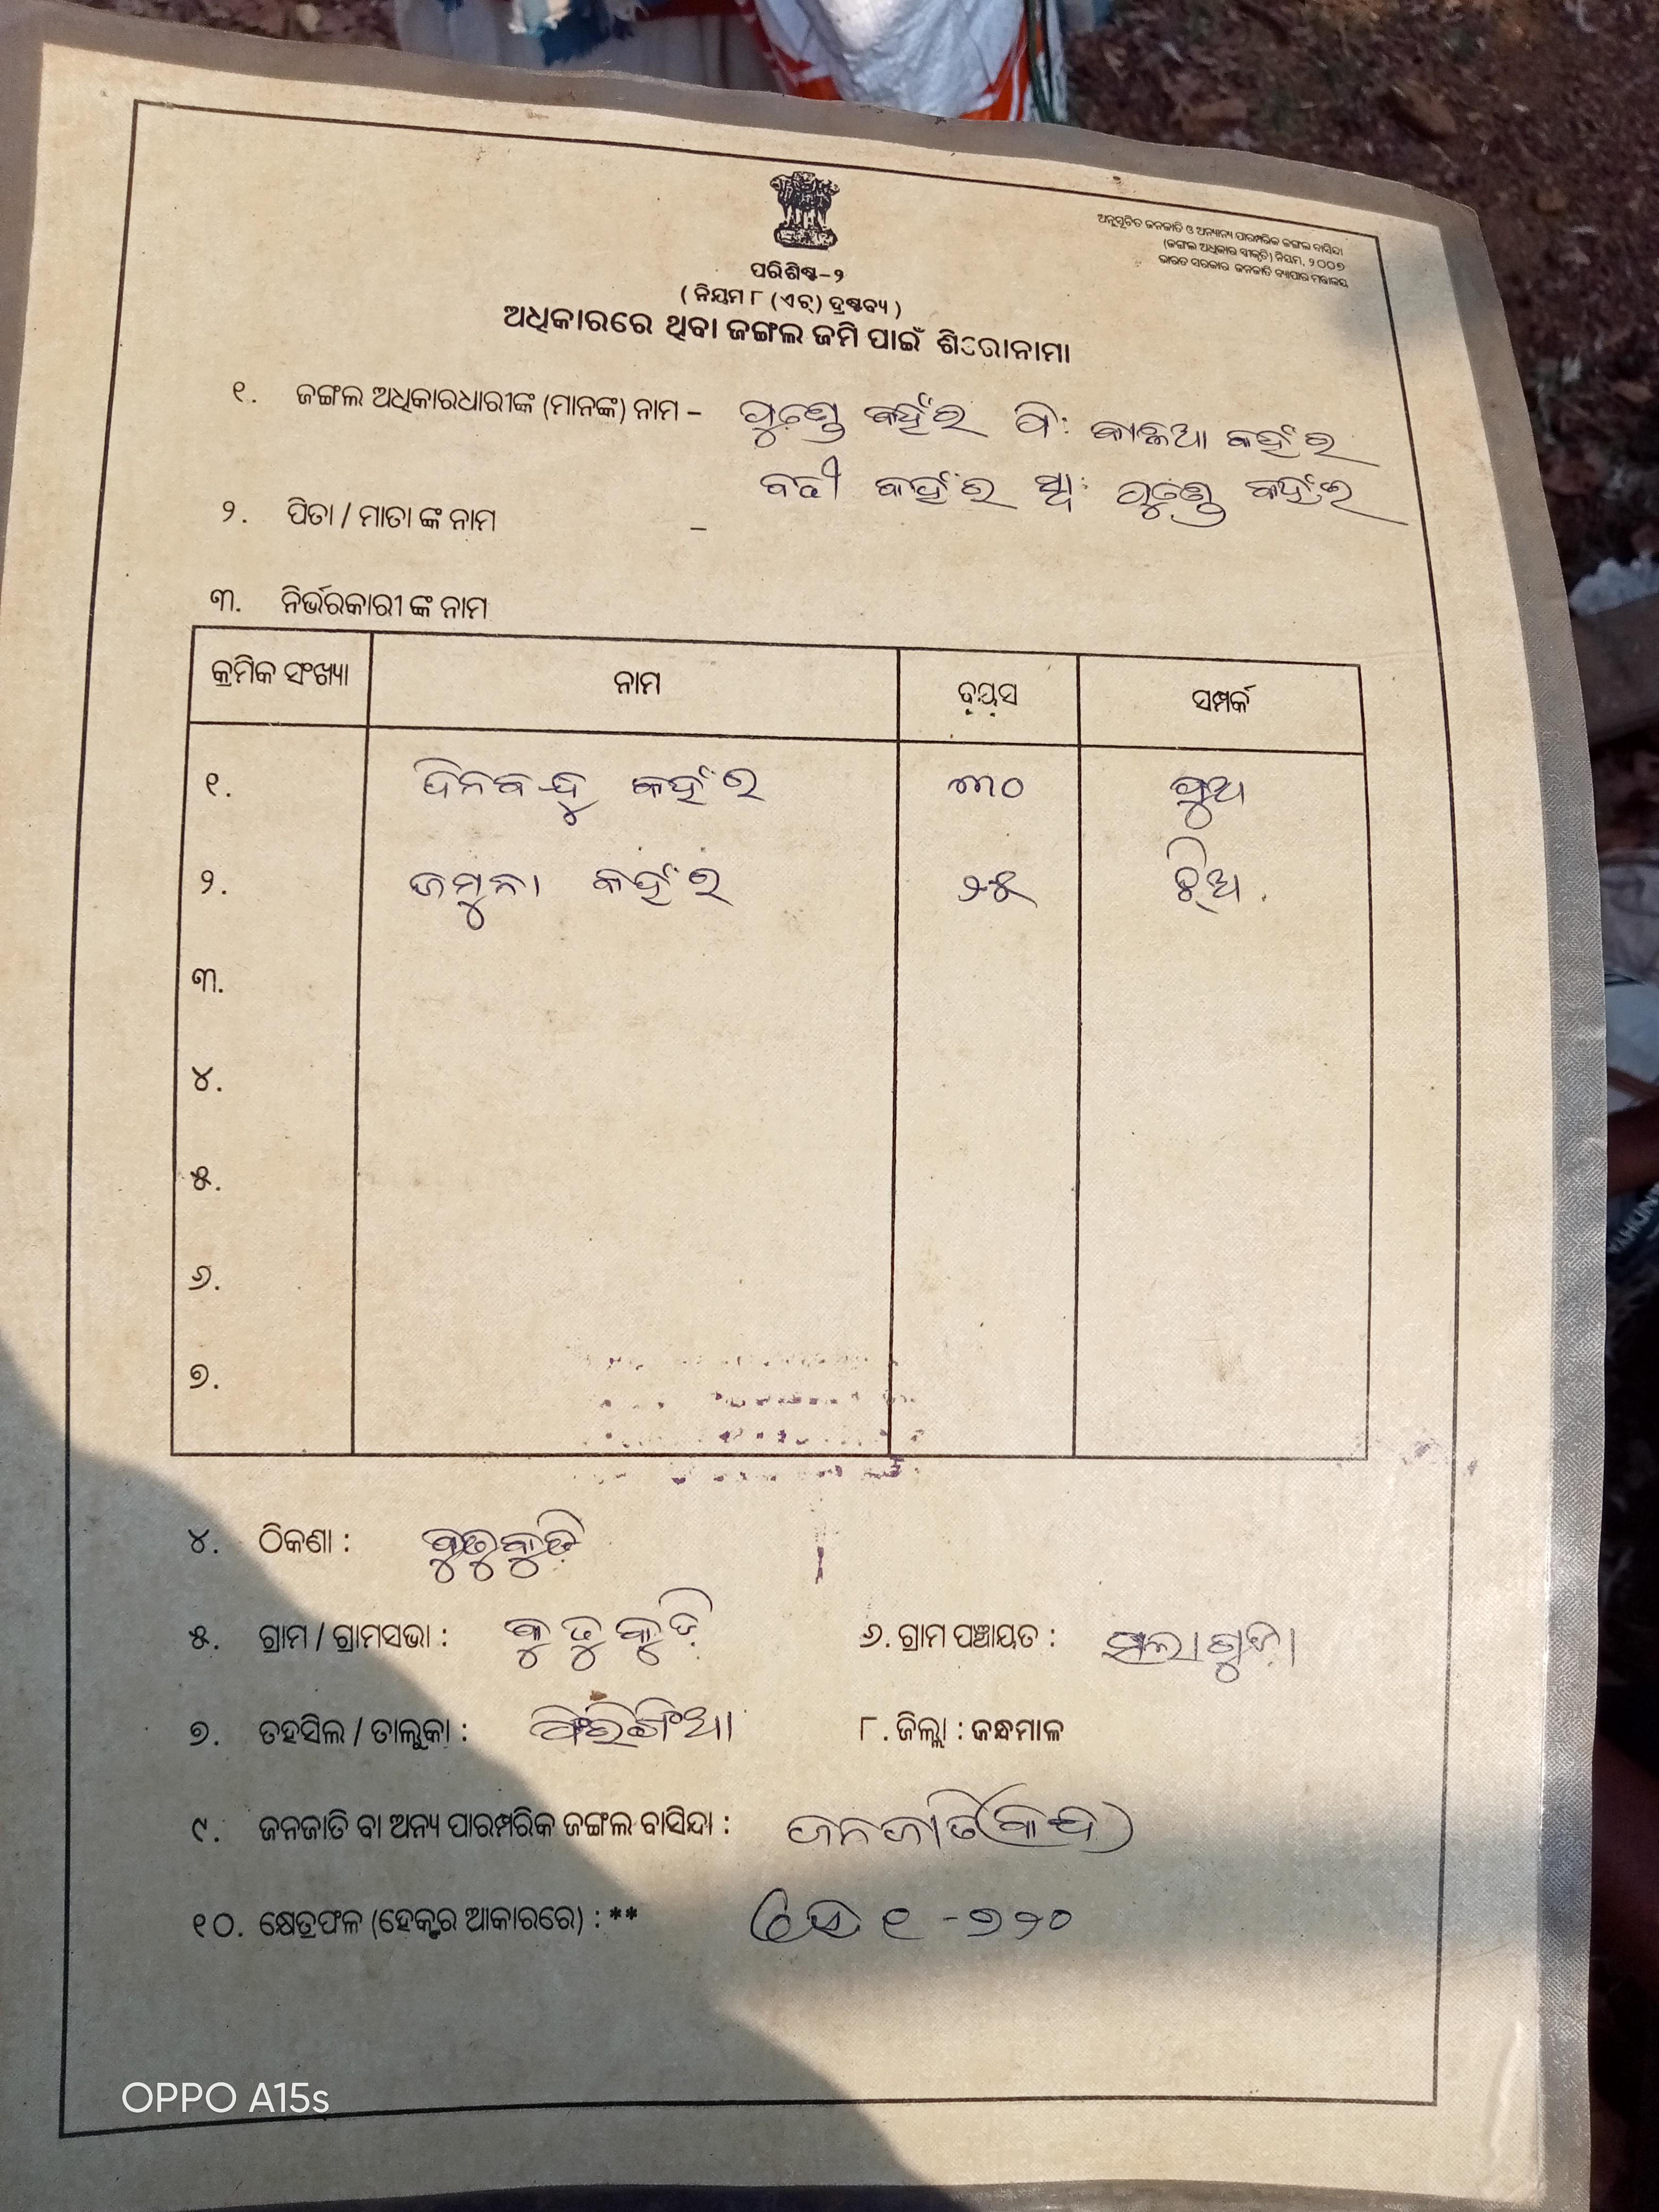 ଅନୁସୂଚିତ ଜନଜାତି ଓ ଅନ୍ୟାନ୍ୟ ପାରମ୍ପରିକ ଜଙ୍ଗଲ ବାସିନ୍ଦା
(ଜଙ୍ଗଲ ଅଧିକାର ସ୍ୱୀକୃତି) ନିୟମ, ୨୦୦୭
ଭାରତ ସରକାର ଜନଜାତି ବ୍ୟାପାର ମନ୍ତ୍ରାଳୟ
ପରିଶିଷ୍ଟ-୨
( ନିୟମ ୮ (ଏଚ୍) ଦ୍ରଷ୍ଟବ୍ୟ )
ଅଧିକାରରେ ଥିବା ଜଙ୍ଗଲ ଜମି ପାଇଁ ଶିରୋନାମା
୧. ଜଙ୍ଗଲ ଅଧିକାରଧାରୀଙ୍କ (ମାନଙ୍କ) ନାମ – କହଁର ପି: କହଁର
କହଁର ସ୍ୱା: କହଁର
୨. ପିତା / ମାତା ଙ୍କ ନାମ –
୩. ନିର୍ଭରକାରୀ ଙ୍କ ନାମ
କ୍ରମିକ ସଂଖ୍ୟା ନାମ ବୟସ ସମ୍ପର୍କ
୧. ଦିନବନ୍ଧୁ କହଁର ୩୦ ପୁଅ
୨. ଜମୁନା କହଁର ୨୫ ଝିଅ.
୩.
୪.
୫.
୬.
୭.
୪. ଠିକଣା : କୁଡୁକୁଡି
୫. ଗ୍ରାମ / ଗ୍ରାମସଭା : କୁଡୁକୁଡି ୬. ଗ୍ରାମ ପଞ୍ଚାୟତ : ସଲାଗୁଡ଼ା
୭. ତହସିଲ / ତାଲୁକା : ଫିରିଙ୍ଗିଆ ୮. ଜିଲ୍ଲା : କନ୍ଧମାଳ
୯. ଜନଜାତି ବା ଅନ୍ୟ ପାରମ୍ପରିକ ଜଙ୍ଗଲ ବାସିନ୍ଦା : ଜନଜାତି (କନ୍ଧ)
୧୦. କ୍ଷେତ୍ରଫଳ (ହେକ୍ଟର ଆକାରରେ) : ** ହେ ୧ - ୭୨୦
OPPO A15s